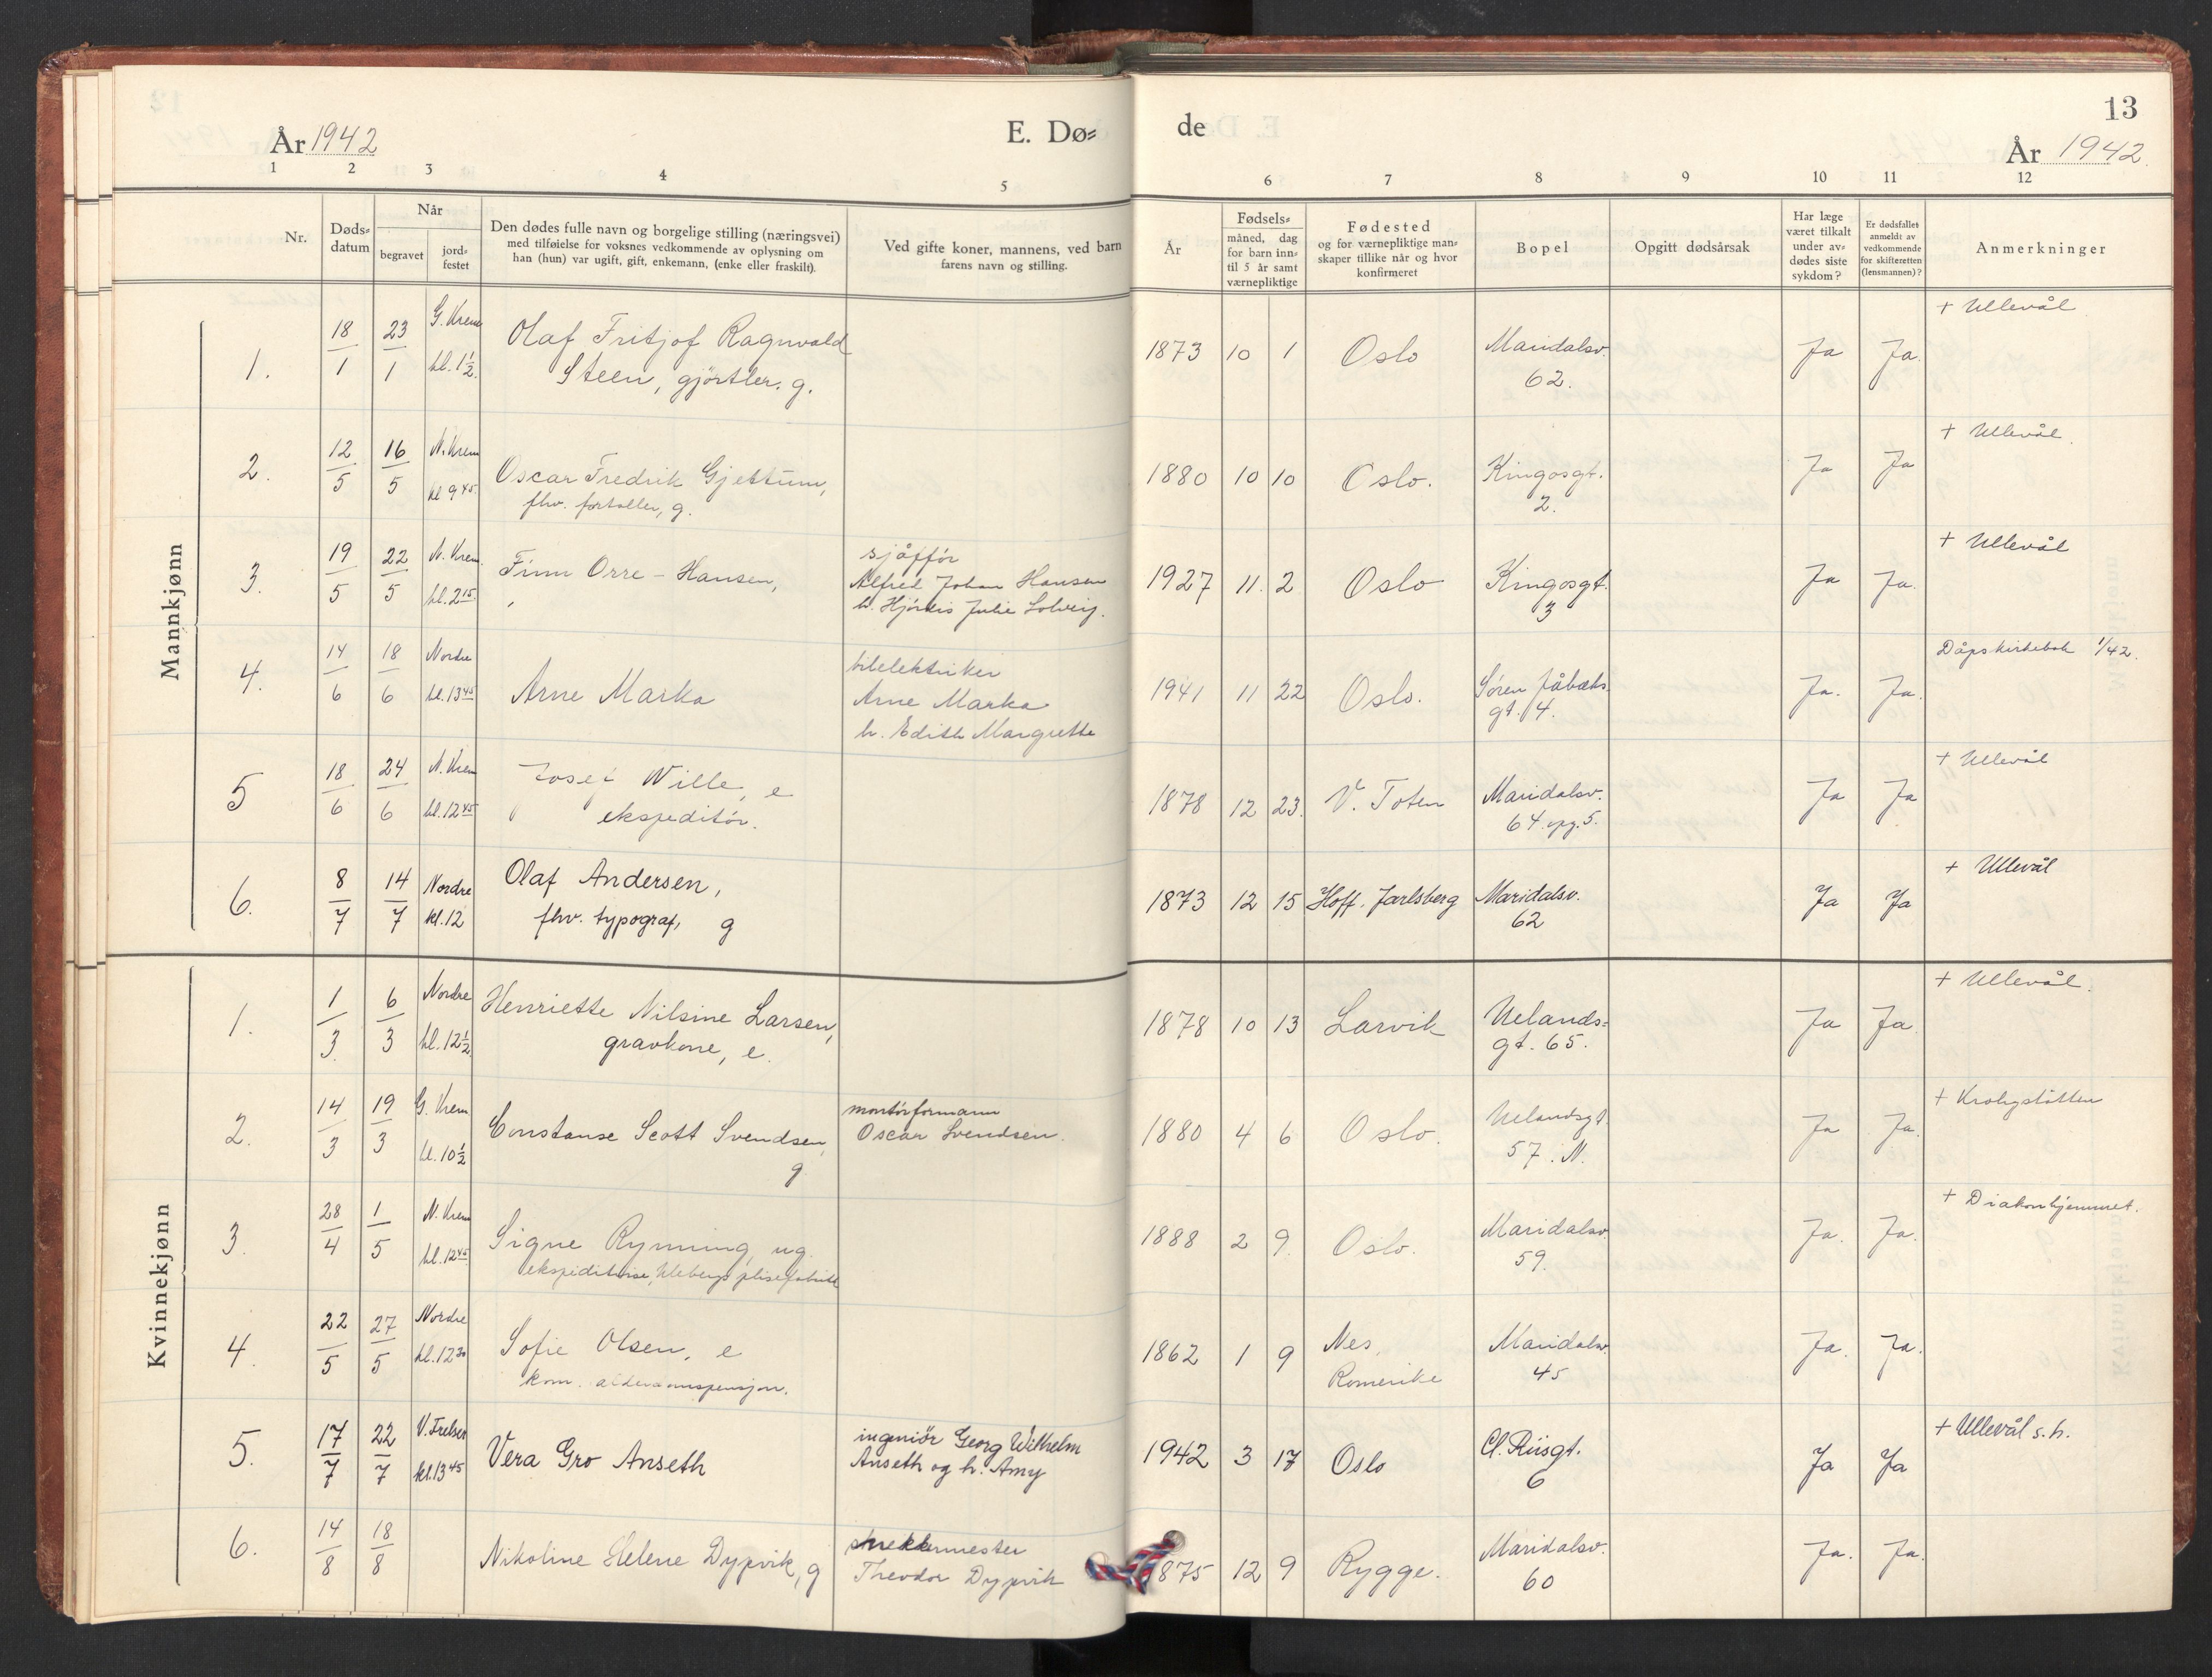 År 1942
E. Dø=
de
13
År 1942.
1 2 3 4 5 6 7 8 9 10 11 12
Nr.
Døds=
datum
Når
begravet
jord=
festet
Den dødes fulle navn og borgelige stilling (næringsvei)
med tilføielse for voksnes vedkommende av oplysning om
han (hun) var ugift, gift, enkemann, (enke eller fraskilt).
Ved gifte koner, mannens, ved barn
farens navn og stilling.
År
Fødsels=
måned, dag
for barn inn=
til 5 år samt
værnepliktige
Fødested
og for værnepliktige man=
skaper tillike når og hvor
konfirmeret
Bopel
Opgitt dødsårsak
Har læge
været tilkalt
under av=
dødes siste
sykdom?
Er dødsfallet
anmeldt av
vedkommende
for skifteretten
(lensmannen)?
Anmerkninger
Mannkjønn
1. 18/1 23/1 G. Krem kl. 1½.
Olaf Fritjof Ragnvald
Steen, gjørtler. g.
1873 10 1 Oslo
Maridalsv.
62.
Ja Ja.
+ Ullevål
2. 12/5 16/5 N. Krem kl 9 45.
Oscar Fredrik Gjettum,
fhv. fortoller, g.
1880 10 10 Oslo.
Kingosgt.
2.
Ja Ja
+ Ullevål.
3. 19/5 22/5 N. Krem. kl. 2 15.
Finn Orre - Hansen,
sjåfför
Alfred Johan Hansen
h. Hjördis Julie Solveig.
1927 11. 2 Oslo
Kingosgt.
3
Ja Ja.
+ Ullevål
4. 14/6 18/6 Nordre kl. 13 45
Arne Marka
bilelektriker
Arne Marka
h. Edith Margrethe
1941 11 22 Oslo.
Søren Jåbæks
gt. 4.
Ja. Ja.
Dåpskirkebok 1/42.
5 18/6 24/6 N. Krem kl. 12 45
Josef Wille, e
ekspeditör.
1878 12 23. V. Toten
Maridalsv.
64. opg. 5.
Ja Ja
+ Ullevål
6. 8/7 14/7 Nordre kl. 12
Olaf Andersen,
fhv. typograf, g
1873 12 15 Hoff. Jarlsberg
Maridalsv.
62
Ja Ja
+ Ullevål
Kvinnekjønn
1. 1/3. 6/3 Nordre kl. 12½
Henriette Nilsine Larsen,
gravkone, e.
1878 10 13 Larvik
Uelands=
gt. 65.
Ja Ja.
+ Ullevål.
2. 14/3 19/3 G. Krem kl. 10½
Constanse Scott Svendsen,
g.
montörformann
Oscar Svendsen.
1880 4 6 Oslo.
Uelandsgt.
57. N.
Ja Ja.
+ Krohgstötten
3. 28/4 1/5 N. Krem kl. 12 45
Signe Rynning, ug.
ekspeditrise, Klebergs plisefabrikk
1888 2 9. Oslo.
Maridalsv.
59.
Ja. Ja.
+ Diakonhjemmet.
4. 22/5 27/5 Nordre kl. 12 30
Sofie Olsen, e
kom. alderdomspensjon.
1862 1 9
Nes,
Romerike
Maridalsv.
45
Ja. Ja.
5. 17/7 22/7 V. Frelser kl. 13 45
Vera Gro Anseth
ingeniör Georg Wilhelm
Anseth og h. Amy
1942 3 17 Oslo
Cl. Riisgt.
6
Ja Ja
+ Ullevål s. h.
6. 14/8 18/8
Nikoline Helene Dypvik, g
snekkermester
Theodor Dypvik
1875 12 9 Rygge.
Maridalsv.
60
Ja. Ja.